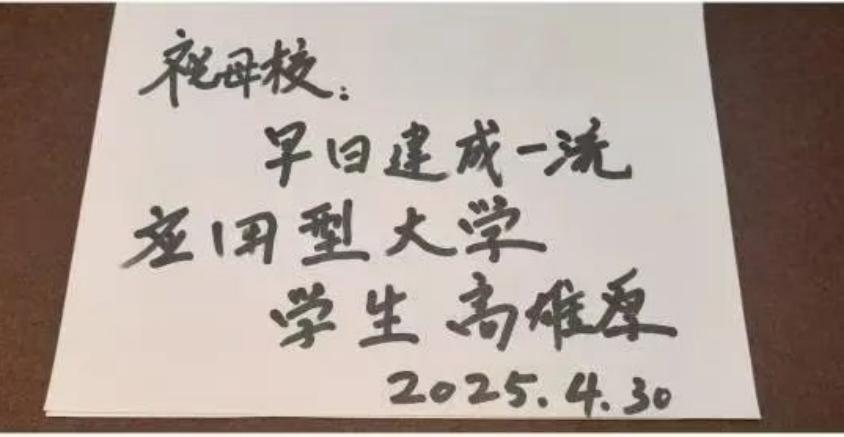 祝母校:
早日建成一流
应用型大学
学生 高雄厚
2025.4.30